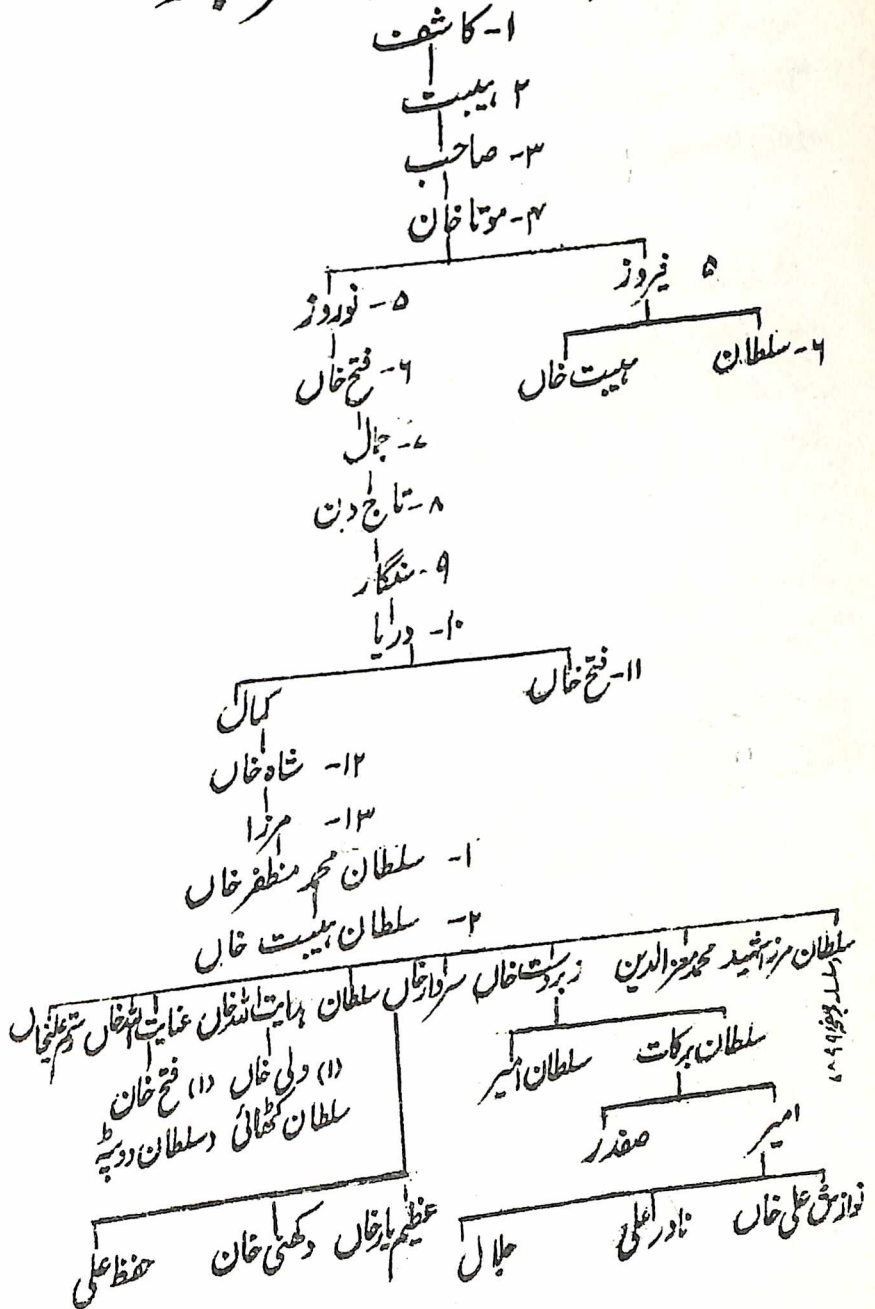 ۱- کاشف
۲ ہیبت
۳- صاحب
۴- موتا خان
۵ فیروز
۵- نوروز
۶- سلطان
ہیبت خاں
۶- فتح خاں
۷- جمال
۸- تاج دین
۹- سنگار
۱۰- دریا
۱۱- فتح خاں
کمال
۱۲- شاہ خاں
۱۳- مرزا
۱- سلطان محمد مظفر خاں
۲- سلطان ہیبت خاں
سلطان مرزا شہید محمد معز الدین زبردست خاں سردار خاں سلطان ہدایت اللہ خاں عنایت اللہ خاں رستم علیخاں
سلطان برکات سلطان امیر
(۱) ولی خاں (۱) فتح خان
سلطان کٹھائی سلطان دوپٹہ
امیر صفدر
نوازش علی خاں نادر علی جلال
عظیم یار خاں دکھنی خان حفظ علی